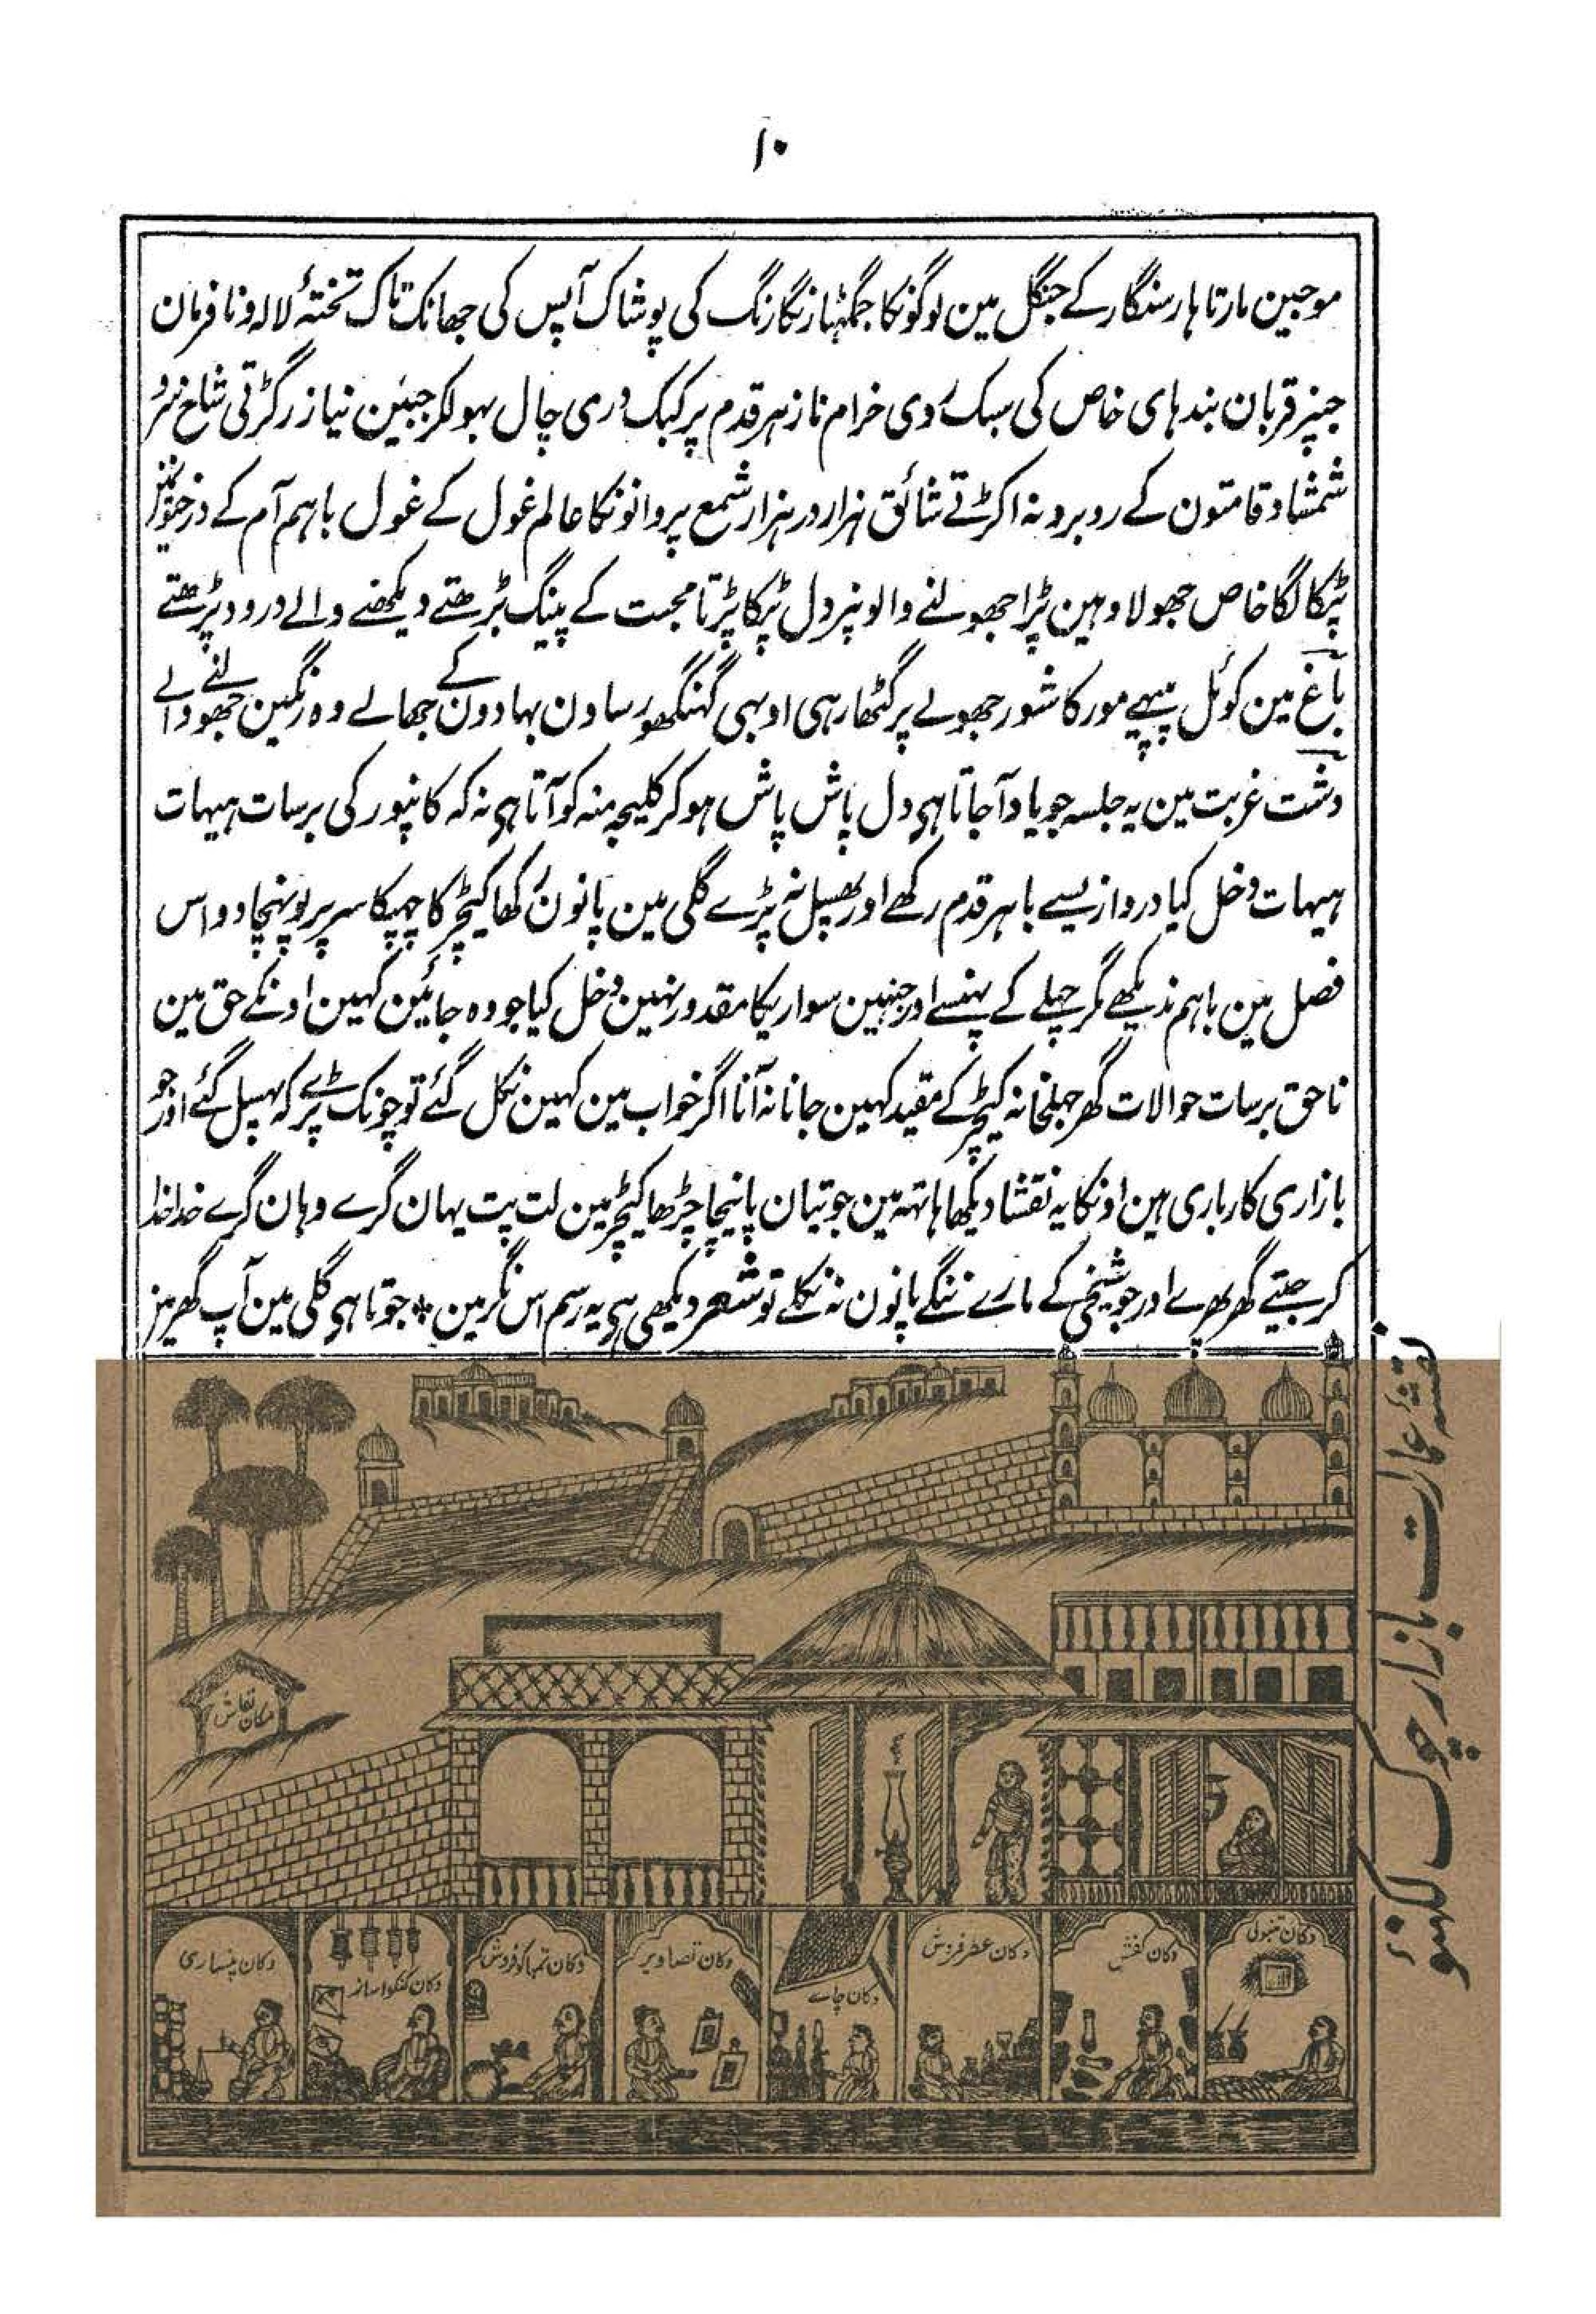 ۱۰
موجین مارتا ہار سنگار کے جنگل مین لوگونکا جمگہٹا رنگارنگ کی پوشاک آپس کی جھانک تاک تختۂ لالہ و نافرمان
جنپر قربان بندہای خاص کی سبک رُوی خرام ناز ہر قدم پر کبک دری چال بہولکر جبین نیاز رگڑتی شاخ سرو
شمشاد قامتون کے روبرو نہ اکڑتے شائق ہزار در ہزار شمع پروانونکا عالم غول کے غول باہم آم کے درختونمین
ٹپکا لگا خاص جھولا وہین پڑا جھولنے والونپر دل ٹپکا پڑتا محبت کے پینگ بڑھتے دیکھنے والے درود پڑھتے
باغ مین کوئل پپیہے مور کا شور جھولے پر گھٹا رہی اوبہی گہنگھور ساون بہادون کے جھالے وہ رنگین جھولنے والے
دشت غربت مین یہ جلسہ جو یاد آجاتا ہی دل پاش پاش ہوکر کلیجہ منہ کو آتا ہی نہ کہ کانپور کی برسات ہیہات
ہیہات دخل کیا دروازیسے باہر قدم رکھے اور پھسپل نہ پڑے گلی مین پانون رکھا کیچڑ کا چھپکا سر پر پونہچا دو اس
فصل مین باہم ندیکھے مگر چہلے کے پہنسے اور جنہین سواریکا مقدور نہین دخل کیا جو وہ جائین کہین اونکے حق مین
ناحق برسات حوالات گھر جیلخانہ کیچڑ کے مقید کہین جانا نہ آنا اگر خواب مین کہین نکل گئے تو چونک پڑے کہ پہسپل گئے اور جو
بازاری کارباری ہین اونکا یہ نقشا دیکھا ہاتہہ مین جوتیان پائنچا چڑھا کیچڑ مین لت پت یہان گرے وہان گرے خدا خدا
کر جیتے گھر پھرے اور جو شیخی کے مارے ننگے پانون نہ نکلے تو شعر دیکھی ہی یہ رسم اس نگر مین * جوتا ہی گلی مین آپ گھر مین
نقشہ عمارت بازار چوک لکہنو
مکان نقاش
دکان تنبولی
دکان کفش
دکان عطر فروش
دکان چاے
دکان تصاویر
دکان تمباکو فروش
دکان کنکوا ساز
دکان پنساری